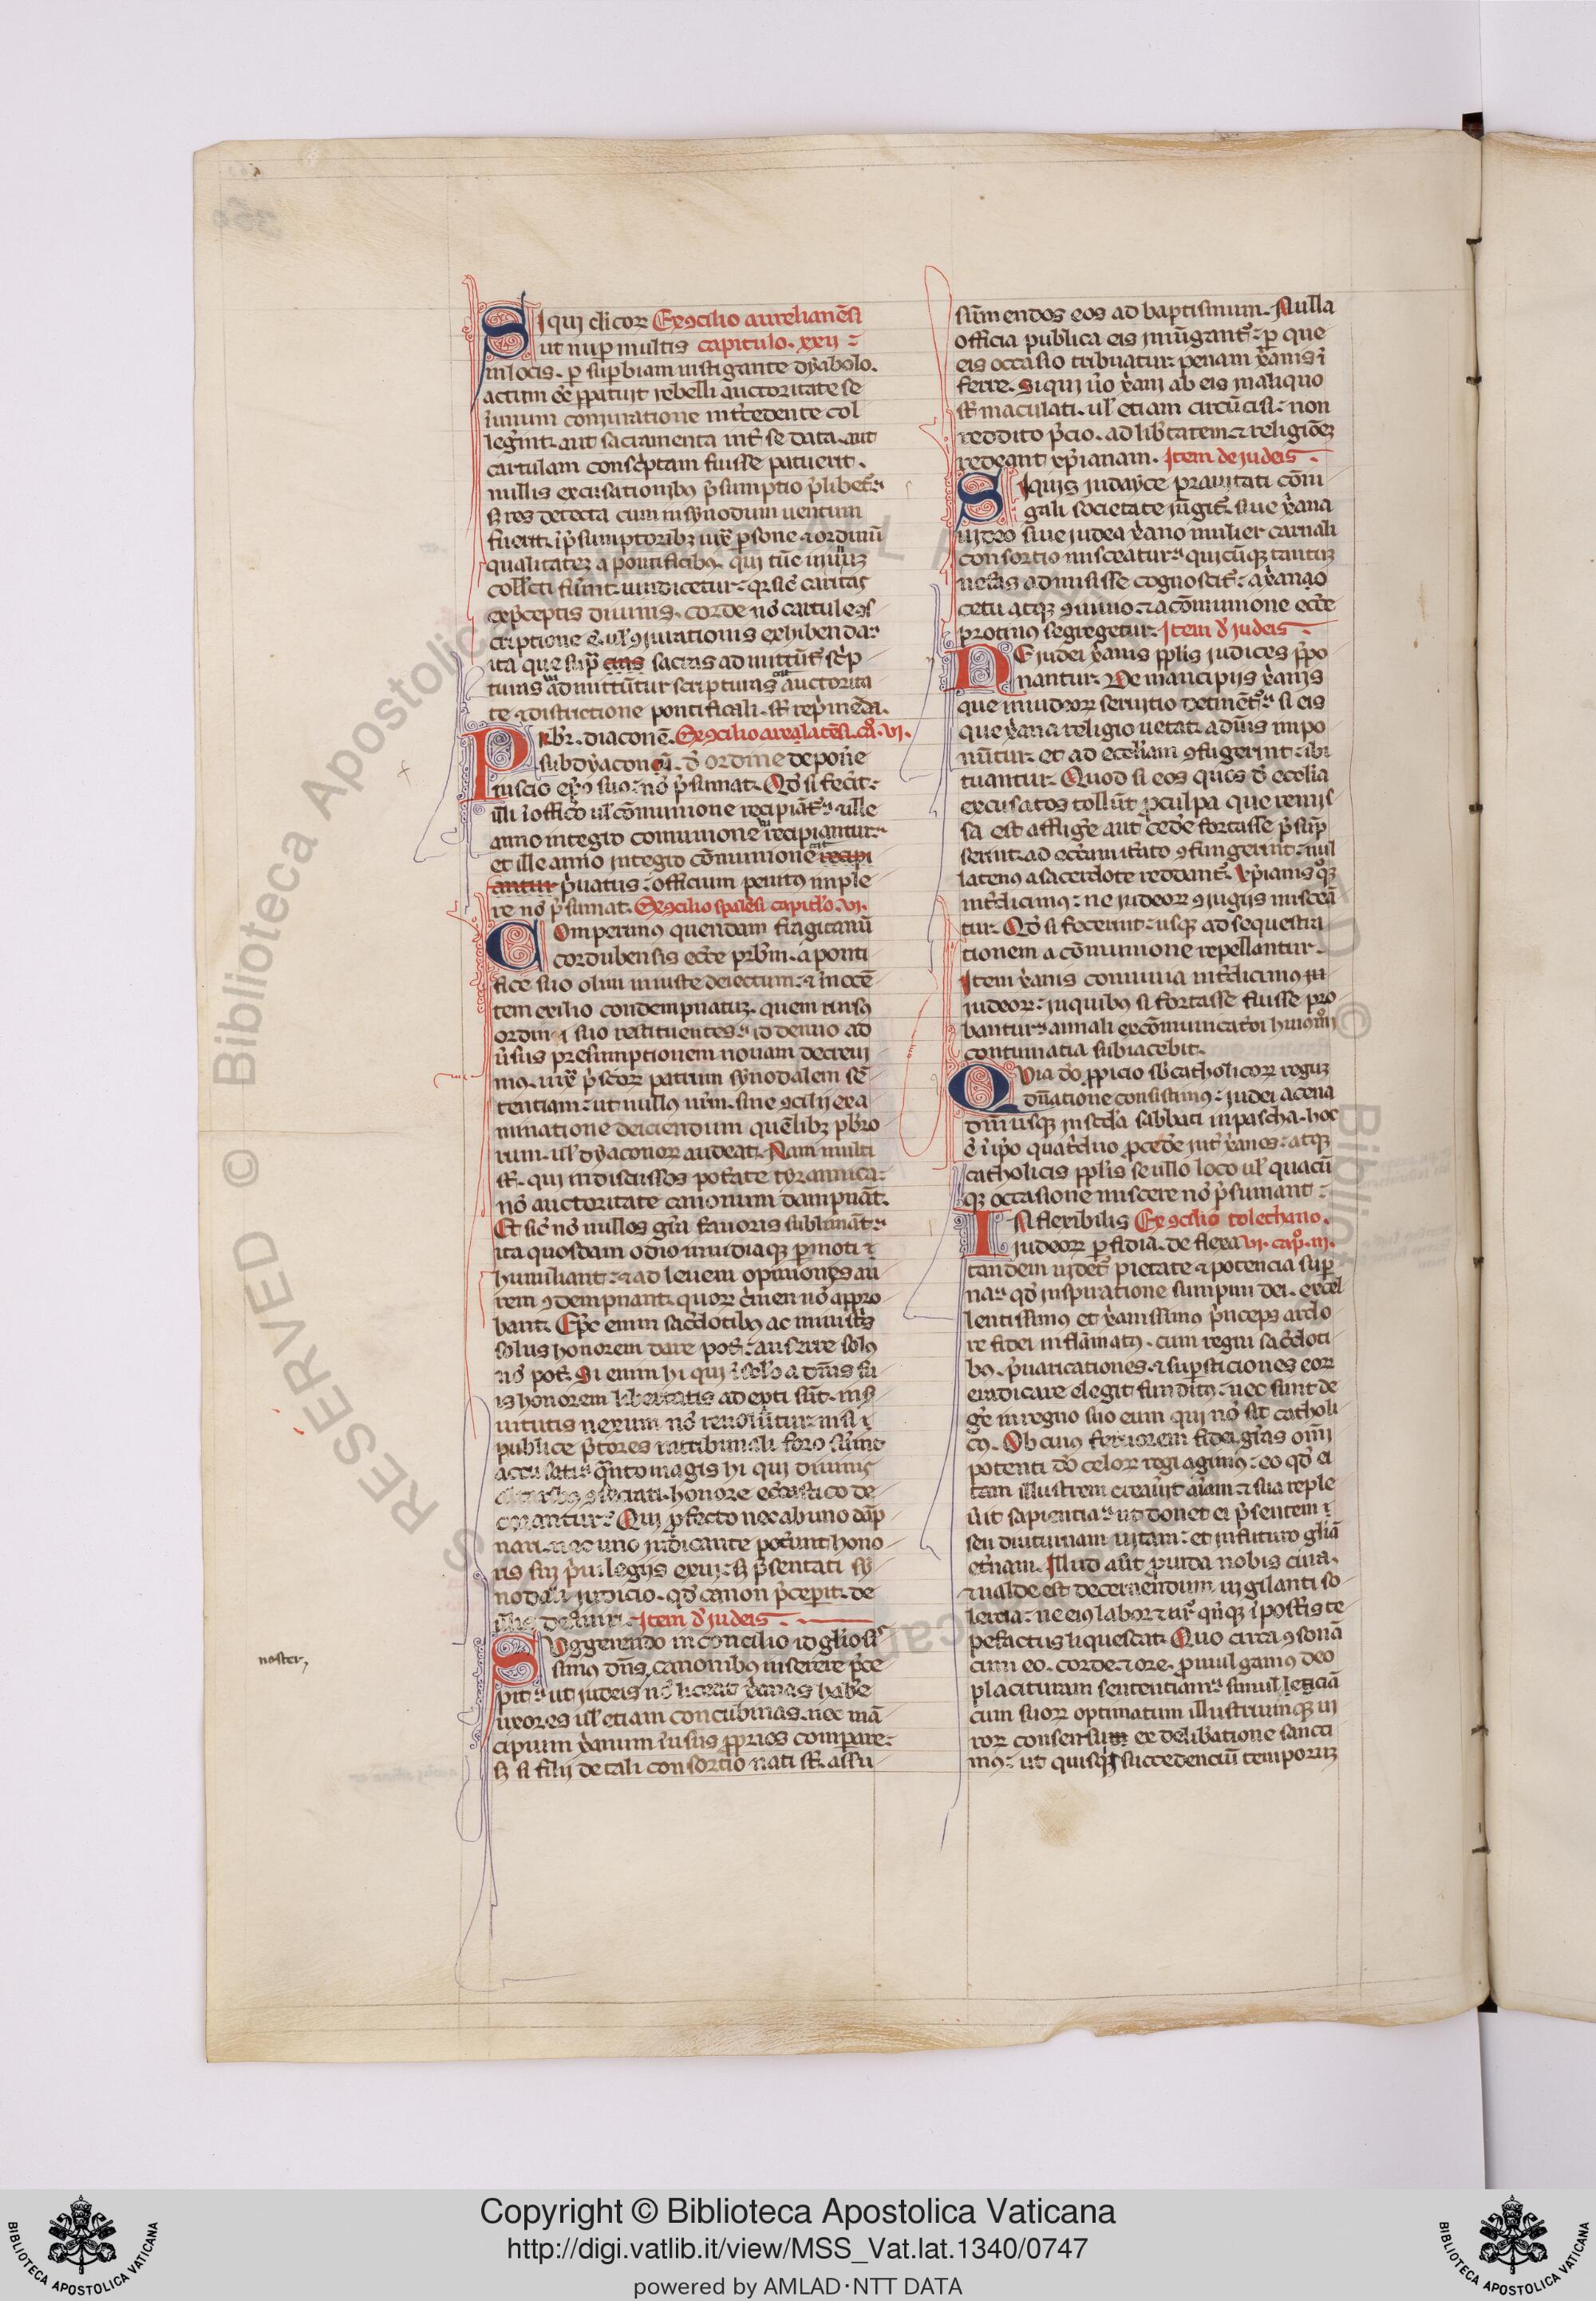 Si qui clicoꝝ Ex ꝯcilio aurelianēsi
ut nup multis capitulo. xxij
in locis. p supbiam instigante dyabolo.
actum eē ꝑpatuit rebelli auctoritate se
in unum coniuratione intcedente col
legint. aut sacramenta int se data. aut
cartulam consciptam fuisse patuerit.
nullis excusationibꝰ psumptio plibet.
ꝫ res detecta cum in synodum uentum
fuerit. i psumptoribꝫ iuxᵃ psone ⁊ ordinū
qualitatem a pontificibꝰ. qui tūc in unū
collecti fuint uindicetur. qꝛ sic caritas
ex pceptis diuinis. corde nō cartule ꝯs
criptione ul ꝯiurationis exhibenda.
ita que sup sacras admittūt scrip
turas admittūtur scripturas auctorita
te ⁊ districtione pontificali. sꝫ repimēda.
Prbr. diaconē. Ex ꝯcilio arealatēsi. cᵃ. vi.
subdyaconū. d ordine deponere
inscio epō suo. nō psumat. Qd si fecit.
illi i offico ul cōmunione recipiāt. ⁊ ille
anno integro comunione recipiantur
et ille anno integro cōmunione recipi
antur puatus. officium penitꝰ imple
re nō psumat. Ex ꝯcilio spalēsi capitlo. vi.
Comperimꝰ quendam fragitanū
cordubensis eccle prbm. a ponti
fice suo olim iniuste deiectum. ⁊ inocē
tem exilio condempnatū. quem rursꝰ
ordini suo restituentes. id denuo ad
usus presumptionem nouam decreui
mꝰ. iuxᵃ pscoꝝ patrum synodalem sē
tentiam. ut nullꝰ nrm. sine ꝯcilij exa
minatione deiciendum quēlibꝫ pbro
rum. ul dyaconoꝝ audeat. Nam multi
sꝫ. qui indiscussos potate tyrannica.
nō auctoritate canonum dampnāt.
Et sic nō nullos gra fauoris sublimāt.
ita quosdam odio inuidiaqꝫ pmoti
humiliant. ⁊ ad leuem opinionis au
rem ꝯdempnant. quoꝝ cimen nō appro
bant. Epc enim sacdotibꝰ ac ministis
solus honorem dare pot. auferre solus
nō pot. Si enim hi qui i sclo a dnis su
is honorem libertatis adepti sūt. in s
uitutis nexum nō reuoluūtur nisi
publice ptores tribunali foro fuint
accusati. qnto magis hi qui diuinis
altaribꝰ ꝯsecrati. honore ecclastico de
corantur. Qui pfecto nec ab uno dāp
nari. nec uno iudicante potunt hono
ris sui puilegijs exui. ꝫ psentati sy
nodali iudicio. qd canon pceperit. de
illis definiri. Item d judeis.
Suggerendo in concilio id gliosis
simꝰ dns canonibꝰ inserere pce
pit. ut judeis nō liceat xpanas habere
uxores ul etiam concubinas. nec mā
cipium xpanum i usus pprios comparare.
ꝫ si filij de tali consortio nati sꝫ. assu
noster,
sūmendos eos ad baptismum. Nulla
officia publica eis iniūgant. p que
eis occasio tribuatur penam xpanis i
ferre. Si qui uo xpani ab eis in aliquo
sꝫ maculati. ul etiam circūcisi. non
reddito pcio. ad libtatem ⁊ religiōeꝫ
redeant xpianam. Item de judeis.
Siquis judayce prauitati cōiu
gali societate iūgit. siue xpana
iudeo siue judea xpano mulier carnali
consortio misceatur. quicūqꝫ tantuꝫ
nefas admisisse cognoscit. a xpiano
cetu atqꝫ ꝯuiuio. ⁊ a cōmunione eccle
protinꝰ segregetur. Item d judeis.
Ne judei xpanis pplis judices ppo
nantur. De mancipijs xpanis
que in iudeoꝝ seruitio detinēt. si eis
que xpana religio uetat. a dnis impo
nūtur. et ad eccliam ꝯfugerint. ibi
tuantur. Quod si eos quos d ecclia
excusatos tollūt p culpa que remis
sa est affligere aut cedere fortasse psump
serint. ad eccam itato ꝯfugerint. nul
latenꝰ a sacerdote reddant. Xpianis qꝫ
intdicimꝰ. ne judeoꝝ ꝯiugijs misceā
tur. Qd si fecerint. usqꝫ ad sequestra
tionem a cōmunione repellantur.
Item xpanis conuiuia intdicimꝰ
judeoꝝ. in quibꝰ si fortasse fuisse pro
bantur. annali excōmunicatōi huiꝰmōi
contumatia subiacebit.
Quia do ppicio sb catholicoꝝ regum
dnatione consistimꝰ. judei a cena
dni usqꝫ in scda sabbati in pascha. hoc
ē i ipo quatiduo pcedere int xpanos. atqꝫ
catholicis pplis se ullo loco ul quacū
qꝫ occasione miscere nō psumant.
Inflexibilis Ex ꝯcilio tolethano.
judeoꝝ pfidia. deflexa vi. capᵒ. iij.
tandem uidet pietate ⁊ potencia sup
na. qd inspiratione sumpmi dei. excel
lentissimꝰ et xpanissimꝰ pnceps ardo
re fidei inflāmatꝰ. cum regni sacdoti
bꝰ. puaricationes. ⁊ supsticiones eoꝝ
eradicare elegit funditꝰ. nec sinit de
gere in regno suo eum qui nō sit catholi
cꝰ. Ob cuius feruorem fidei. gras omi
potenti do celoꝝ regi agimꝰ. eo qd ei
tam illustrem creauit aiam ⁊ sua reple
uit sapientia. ut donet ei psentem i
seu diuturnam uitam. et in futuro gliā
etnam. Illud aut puida nobis cura.
⁊ ualde est decernendum uigilanti so
lercia. ne eiꝰ labor ⁊ ur qnqꝫ i postis te
pefactus liquescat. Quo circa ꝯsonā
cum eo. corde. ⁊ ore. pmulgamꝰ deo
placituram sententiam. simul etciā
cum suoꝝ optimatum illustriumqꝫ ui
roꝝ consensu ex delibatione sancti
mꝰ. ut quisqꝫ succedenciū temporuꝫ
Copyright © Biblioteca Apostolica Vaticana
http://digi.vatlib.it/view/MSS_Vat.lat.1340/0747
powered by AMLAD·NTT DATA
BIBLIOTECA APOSTOLICA VATICANA
BIBLIOTECA APOSTOLICA VATICANA